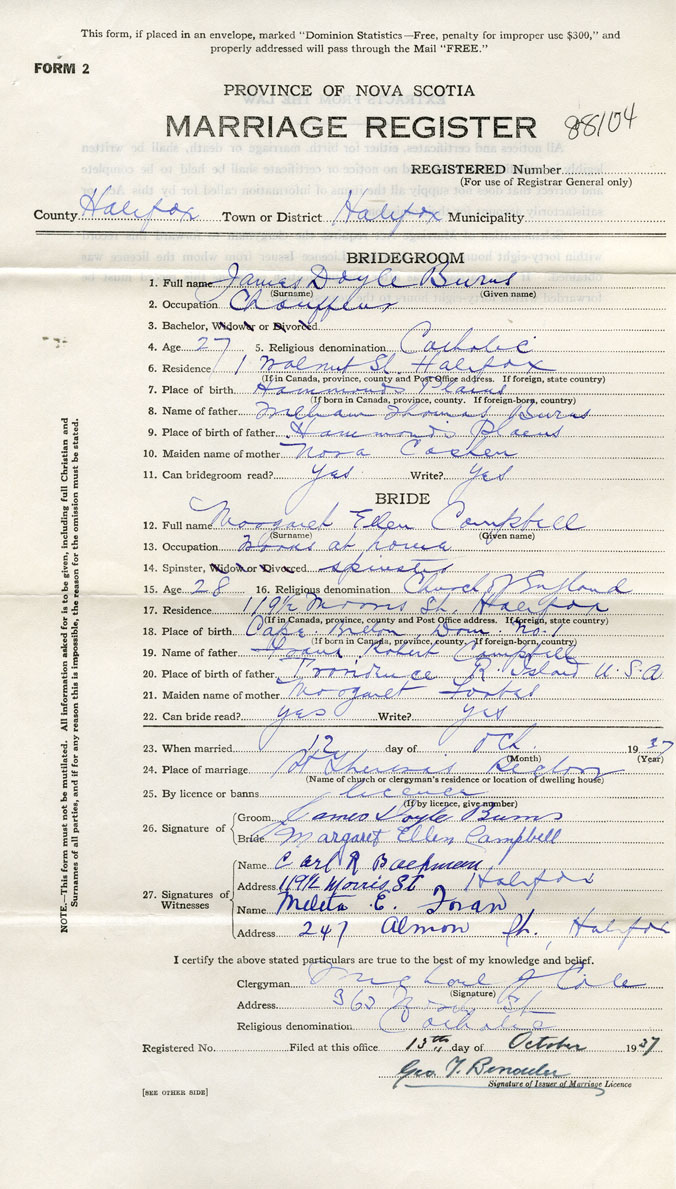 This form, if placed in an envelope, marked "Dominion Statistics—Free, penalty for improper use $300," and
properly addressed will pass through the Mail "FREE."
FORM 2
PROVINCE OF NOVA SCOTIA
MARRIAGE REGISTER 88104
REGISTERED Number
(For use of Registrar General only)
County Halifax Town or District Halifax Municipality
BRIDEGROOM
1. Full name James Doyle Burns
(Surname) (Given name)
2. Occupation Chauffeur
3. Bachelor, Widower or Divorced
4. Age 27 5. Religious denomination Catholic
6. Residence 1 Walnut St. Halifax
(If in Canada, province, county and Post Office address. If foreign, state country)
7. Place of birth Hammonds Plains
(If born in Canada, province, county. If foreign-born, country)
8. Name of father William Thomas Burns
9. Place of birth of father Hammonds Plains
10. Maiden name of mother Nora
11. Can bridegroom read? Yes Write? Yes
BRIDE
12. Full name Margaret Ellen Campbell
(Surname) (Given name)
13. Occupation at home
14. Spinster, Widow or Divorced spinster
15. Age 28 16. Religious denomination Church of England
17. Residence 119½ Morris St. Halifax
(If in Canada, province, county and Post Office address. If foreign, state country)
18. Place of birth Cape Breton Dom. No. 1
(If born in Canada, province, county. If foreign-born, country)
19. Name of father Robert Campbell
20. Place of birth of father Providence R. Island U.S.A
21. Maiden name of mother Margaret Forbes
22. Can bride read? yes Write? yes
23. When married 12 day of Oct. 1937
(Month) (Year)
24. Place of marriage St Theresa's
(Name of church or clergyman's residence or location of dwelling house)
25. By licence or banns licence
(If by licence, give number)
26. Signature of
Groom James Doyle Burns
Bride Margaret Ellen Campbell
27. Signatures of Witnesses
Name Carl R
Address 119½ Morris St Halifax
Name E.
Address 247 Almon St., Halifax
I certify the above stated particulars are true to the best of my knowledge and belief.
Clergyman Michael J Cole
(Signature)
Address St
Religious denomination Catholic
Registered No. Filed at this office 13th day of October 1937
Geo. T.
Signature of Issuer of Marriage Licence
[SEE OTHER SIDE]
NOTE.—This form must not be mutilated. All information asked for is to be given, including full Christian and
Surnames of all parties, and if for any reason this is impossible, the reason for the omission must be stated.